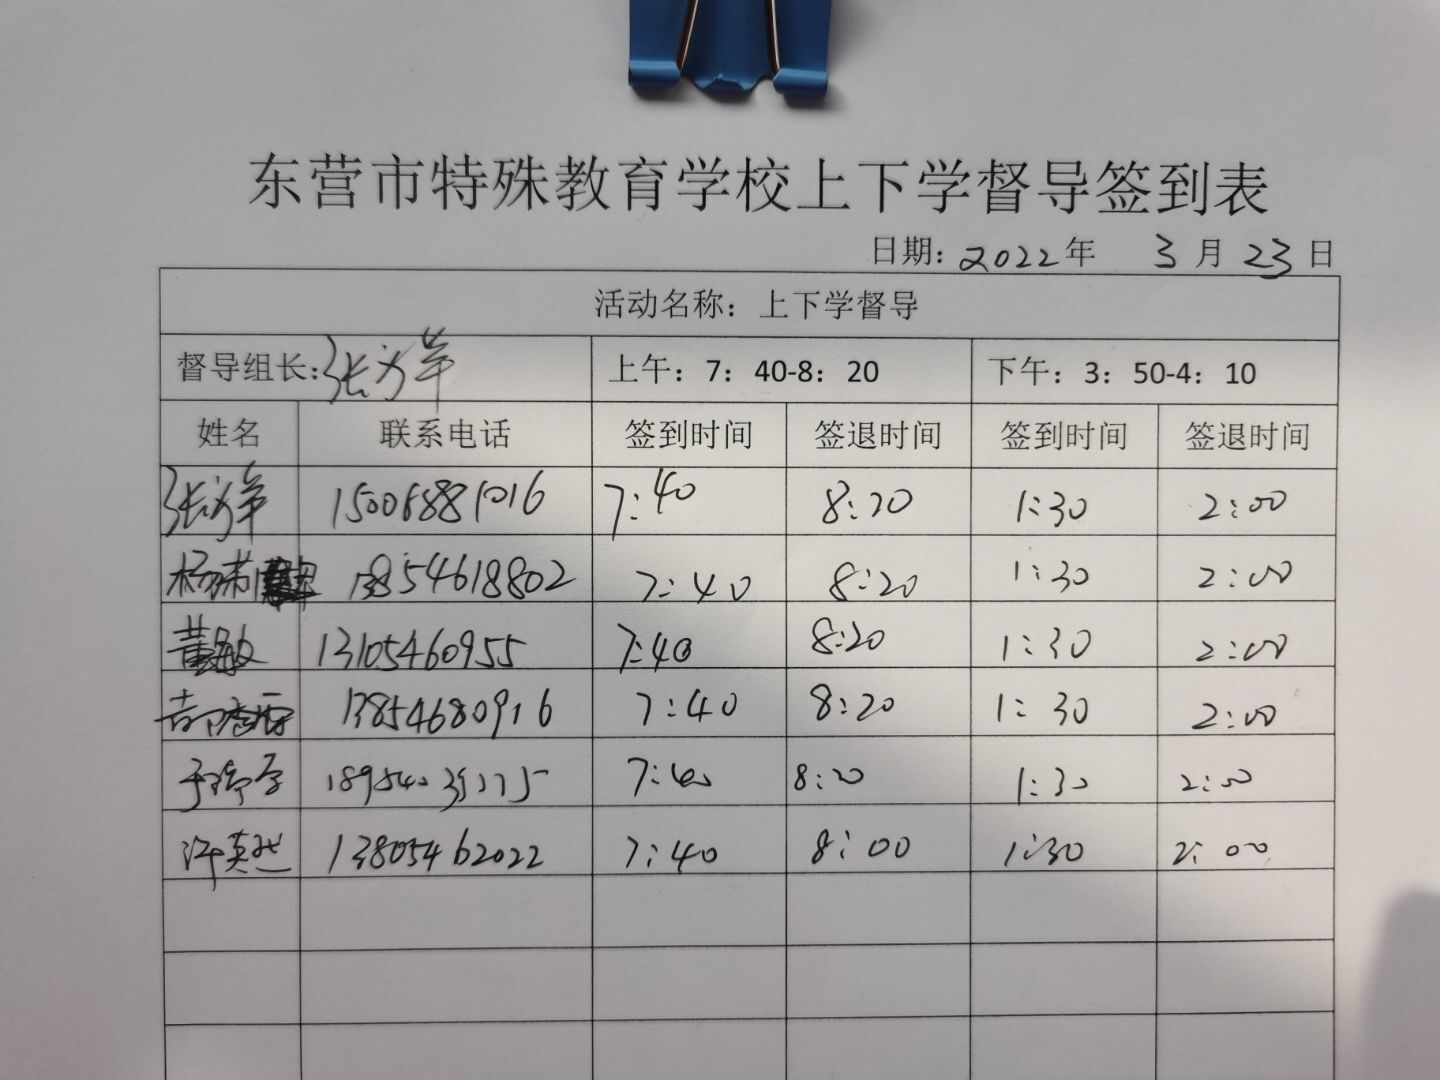 东营市特殊教育学校上下学督导签到表
日期: 2022年 3月 23日
活动名称：上下学督导
督导组长: 上午：7：40-8：20 下午：3：50-4：10
姓名 联系电话 签到时间 签退时间 签到时间 签退时间
7:40 8:20 1:30 2:00
13854618802 7:40 8:20 1:30 2:00
黄敏 13105460955 7:40 8:20 1:30 2:00
13854680916 7:40 8:20 1:30 2:00
7:40 8:20 1:30 2:00
许英兰 13805462022 7:40 8:00 1:30 2:00